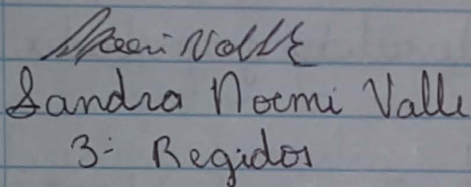 Noemi Valle
Sandra Noemi Valle
3- Regidor